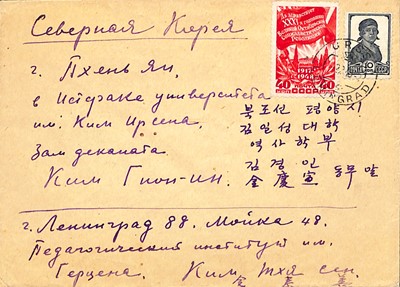 Северная Корея
г. Пхень Ян,
в Истфаке университета
им. Ким Ирсена.
Зам деканата
Ким Гион-ин.
북조선 평양
김일성 대학
역사학부
김경인
金慶寅 동무 앞
г. Ленинград 88. Мойка 48.
Педагогический институт им.
Герцена. Ким Тхя сен.
XXXI
1917
1948
40
40
ПОЧТА СССР
10